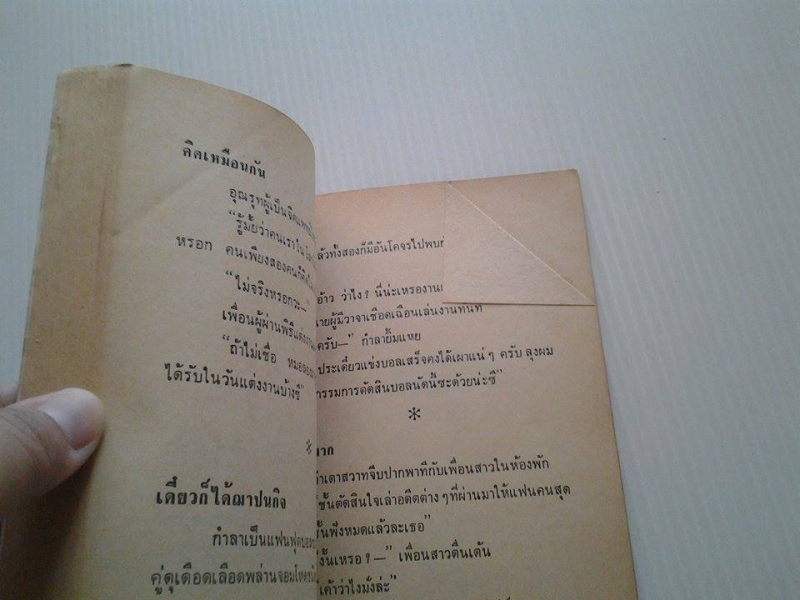 คิดเหมือนกัน
อุณรุทผู้เป็น
“รู้มั้ยว่าคนเราใน
หรอก คนเพียงสองคนก็
“ไม่จริงหรอกวะ—”
เพื่อนผู้ผ่านพิธีแต่งงาน
“ถ้าไม่เชื่อ
ได้รับในวันแต่งงานบ้างซี”
*
เดี๋ยวก็ได้ฌาปนกิจ
กำลาเป็นแฟนฟุตบอล
คู่ดุเดือดเลือดพล่าน
ล้วทั้งสองก็มีอันโคจรไปพบ
อ้าว ว่าไง? นี่น่ะเหรองาน
นายผู้มีวาจาเชือดเฉือนเล่นงานทันที
ครับ—” กำลายิ้มแหย
ประเดี๋ยวแข่งบอลเสร็จคงได้เผาแน่ๆ ครับ ลุงผม
กรรมการตัดสินบอลนัดนี้ซะด้วยน่ะซี”
*
มาก
เตาสวาทจีบปากพาทีกับเพื่อนสาวในห้องพัก
ชั้นตัดสินใจเล่าอดีตต่างๆที่ผ่านมาให้แฟนคนสุด
ั้นฟังหมดแล้วละเธอ”
งั้นเหรอ?—” เพื่อนสาวตื่นเต้น
เค้าว่าไงมั่งล่ะ”